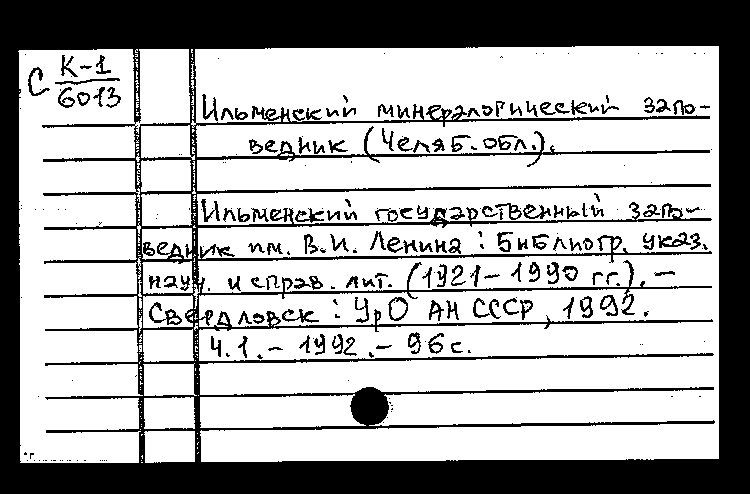 С К-1
6013
Ильменский минералогический запо-
ведник (Челяб. обл.).
Ильменский государственный запо-
ведник им. В.И. Ленина : Библиогр. указ.
науч. и справ. лит. (1921-1990 гг.). -
Свердловск : УрО АН СССР, 1992.
Ч.1. - 1992. - 96 с.